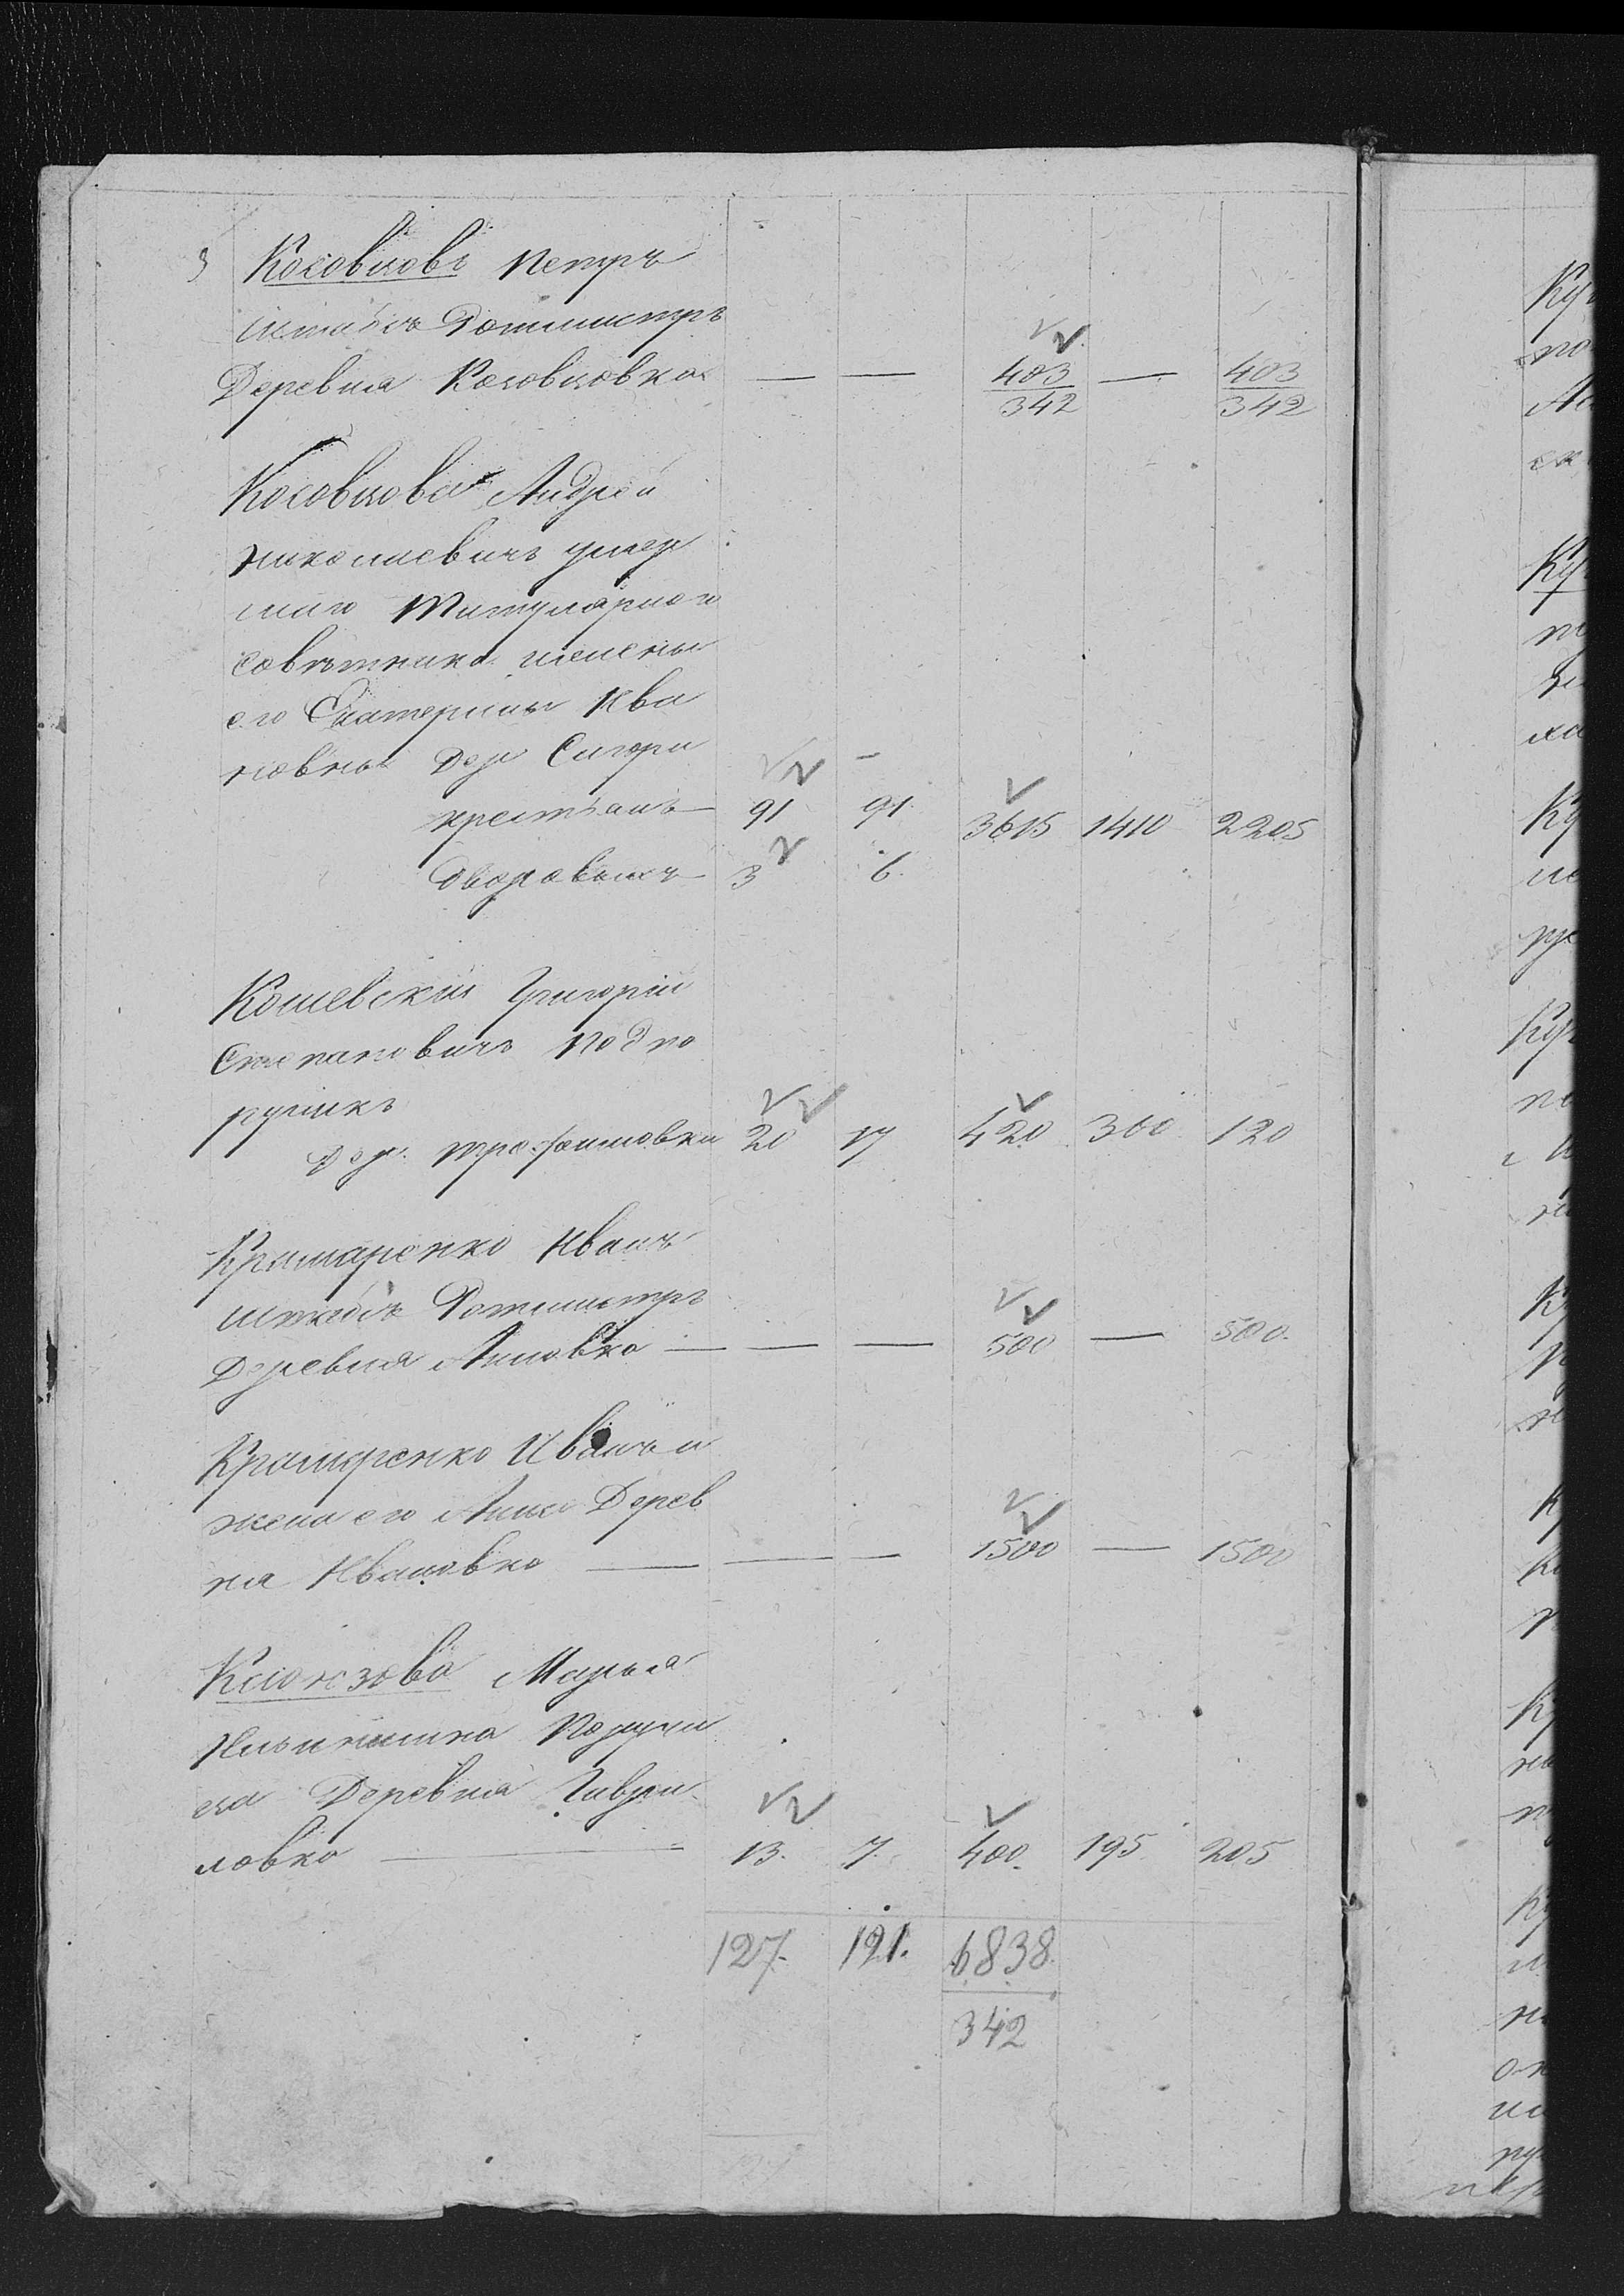 Косовцовъ Петръ
Штабсъ Ротмистръ
Деревня Косовцовка — — 403/342 — 403/342
Косовцова Андрей
Николаевичъ умер
шаго Титулярнаго
Совѣтника жены
его Екатерины Ива
новны Дер
крестьянъ 91 91. 3615 1410 2205
Дворовыхъ 3 6.
Кошевскій Григорій
Степановичъ Подпо
ручикъ
Дер. Трофимовки 20 17 420 300 120
Крамаренко Иванъ
Штабсъ Ротмистръ
Деревня Анновка — — — 500 — 500.
Крамаренко Иванъ и
жена его Анна Дерев
ня Ивановка — — — 1500 — 1500
Марья
Поручи
ца Деревня Гаври
ловка — 13. 7. 400. 195 205
127. 121. 6838.
342